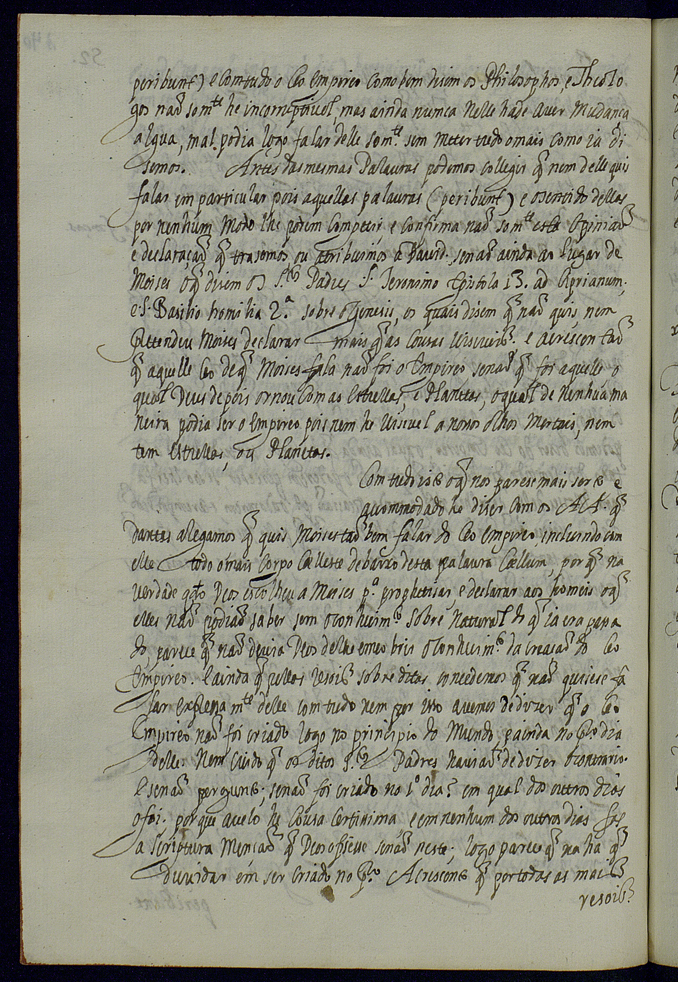 peribunt) e Comtudo o Ceo Empireo como bem disem os Philosophos, e Theolo
gos naõ som.te he incorruptivel, mas ainda nunca nelle hade auer Mudança
algũa, mal podia logo falar delle som.te sem meter tudo o mais como ia di
semos. Antes das mesmas Palauras podemos collegir q̃ nem delle quis
falar em particular pois aquellas palauras (peribunt) e o sentido dellas
por nenhum Modo lhe podem Competir e confirma naõ som.te esta Opiniaõ
e declaraçaõ q̃ trasemos ou atribuimos a Dauid. senaõ ainda ao Lugar de
Moises o q̃ disem os S.tos Padres S. Jeronimo Epistola 13. ad Cyprianum.
e S. Basilio homilia 2.a sobre o Genesis, os quais disem q̃ naõ quis nem
pettendeu Moises declarar mais q̃ as Cousas Visiueis. e acrescentaõ
q̃ aquelle Ceo de q̃ Moises fala naõ foi o Empireo senaõ q̃ foi aquelle o
qual Deus depois ornou com as Estrellas, e Planetas, o qual de nenhũa ma
neira podia ser o Empireo pois nem he Visiuel a nosos olhos Mortais, nem
tem Estrellas, ou Planetas.
Com tudo isto o q̃ nos parese mais serto e
acommodado he diser com os AA. q̃
dantes alegamos q̃ quis Moises taõ bem falar do Ceo Empireo incluindo com
elle todo o mais Corpo Cælleste debaixo desta palaura Cællum, por q̃ na
Verdade q.do Deos escolheu a Moises p.a prophetisar e declarar aos homeis o q̃
elles naõ podiaõ saber sem o conhecim.to Sobre Natural do q̃ ia era pasa
do, parece q̃ naõ deuia Deos delle encobrir o Conhecim.to da creaçaõ do Ceo
Empireo. E ainda q̃ pellas resois sobreditas concedemos q̃ naõ quisese fa
lar expressam.te delle com tudo nem por isso auemos de dizer q̃ o Ceo
Empireo naõ foi criado logo no principio do Mundo, e ainda no pr.o dia
delle. Nem Cuido q̃ os ditos S.tos Padres hauiaõ de dizer o contrario.
E senaõ pergunto; senaõ foi criado no 1.o dia? em qual dos outros dias
o foi. porque auelo he Cousa Certissima e em nenhum dos outros dias fas
a Scriptura Mençaõ q̃ Deos o fisese senaõ neste; logo parece q̃ na há q̃
duuidar em ser Criado no pr.o Acrescento q̃ por todas as mais
resois